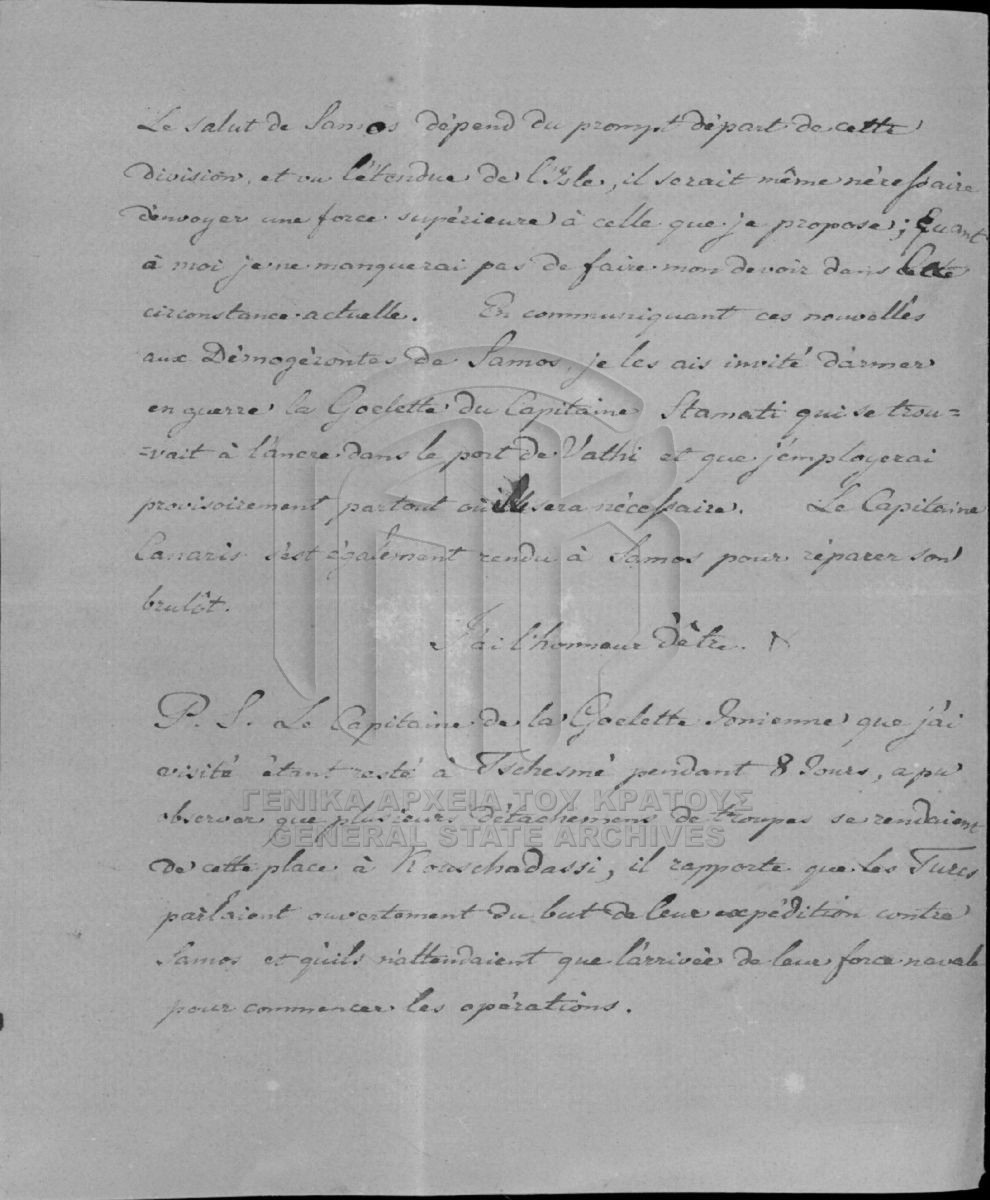 Le salut de Samos dépend du prompt départ de cette
division, et vu l'étendue de l'Isle, il serait même nécessaire
d'envoyer une force supérieure à celle que je propose; Quant
à moi je ne manquerai pas de faire mon devoir dans
circonstance actuelle. En communiquant ces nouvelles
aux Démogérontes de Samos, je les ais invité d'armer
en guerre la Goelette du Capitaine Stamati qui se trou=
=vait à l'ancre dans le port de Vathi et que j'employerai
provisoirement partout où sera nécessaire. Le Capitaine
Canaris s'est également rendu à Samos pour réparer son
brulôt.
J'ai l'honneur d'être.
P. S. Le Capitaine de la Goelette Ionienne que j'ai
visité étant resté à Tschesmé pendant 8 Jours, a pu
ΓΕΝΙΚΑ ΑΡΧΕΙΑ ΤΟΥ ΚΡΑΤΟΥΣ
observer que plusieurs détachemens de troupes se rendaient
GENERAL STATE ARCHIVES
de cette place à Kouschadassi, il rapporte que les Turcs
parlaient ouvertement du but de leur expédition contre
Samos et qu'ils n'attendaient que l'arrivée de leur force navale
pour commencer les opérations.